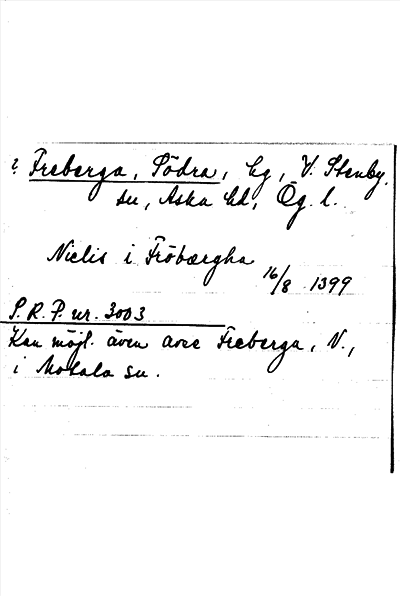 ? Freberga, Södra, by, V. Stenby
sn, Aska hd, Ög. l.
Niclis i Fröbærgha
16/8 1399
S. R. P. nr. 3003
Kan möjl. även avse Freberga, N.,
i Motala sn.